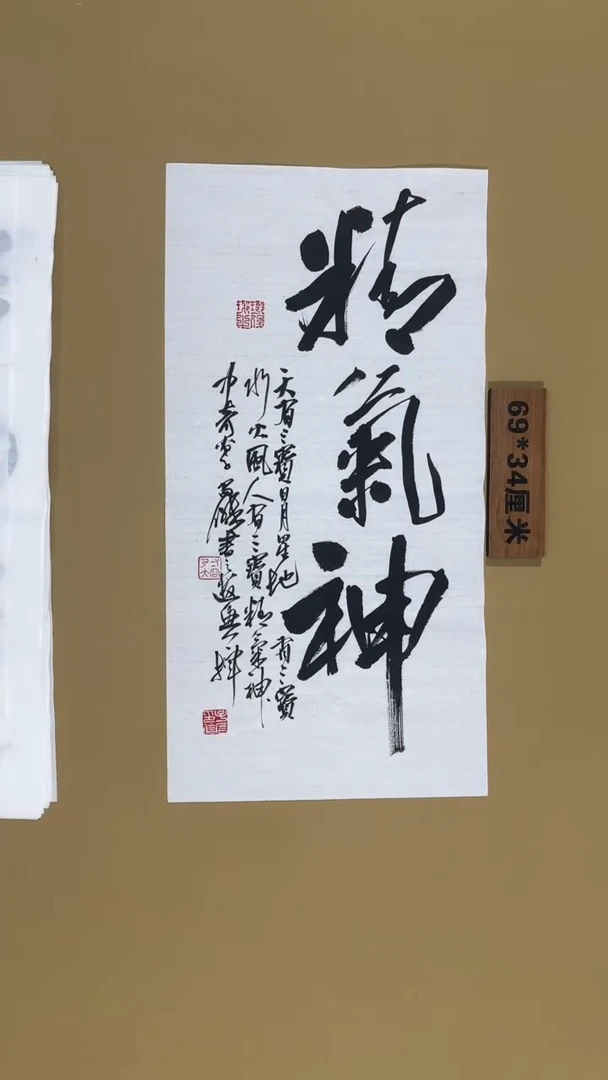 精氣神
天有三寶日月星地有三寶
水火風人有三寶精氣神
書
69*34厘米